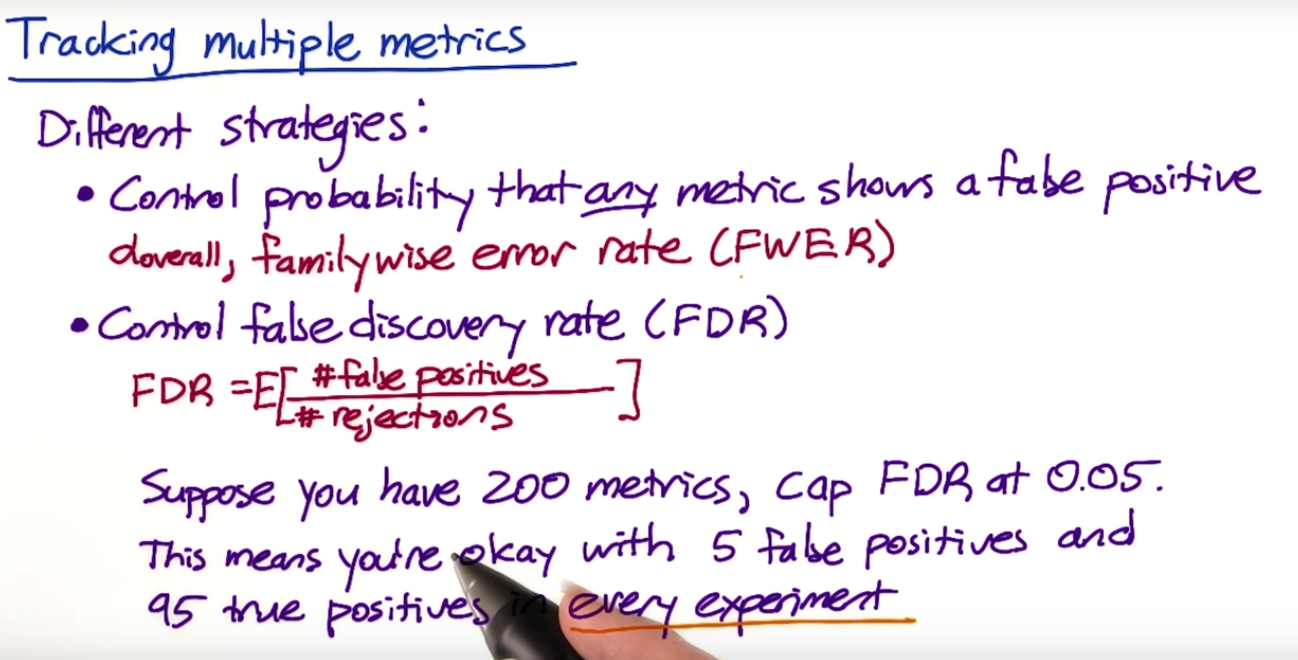 Tracking multiple metrics
Different strategies:
• Control probability that any metric shows a false positive
αoverall, familywise error rate (FWER)
• Control false discovery rate (FDR)
FDR = E[ #false positives
# rejections ]
Suppose you have 200 metrics, cap FDR at 0.05.
This means you're okay with 5 false positives and
95 true positives in every experiment